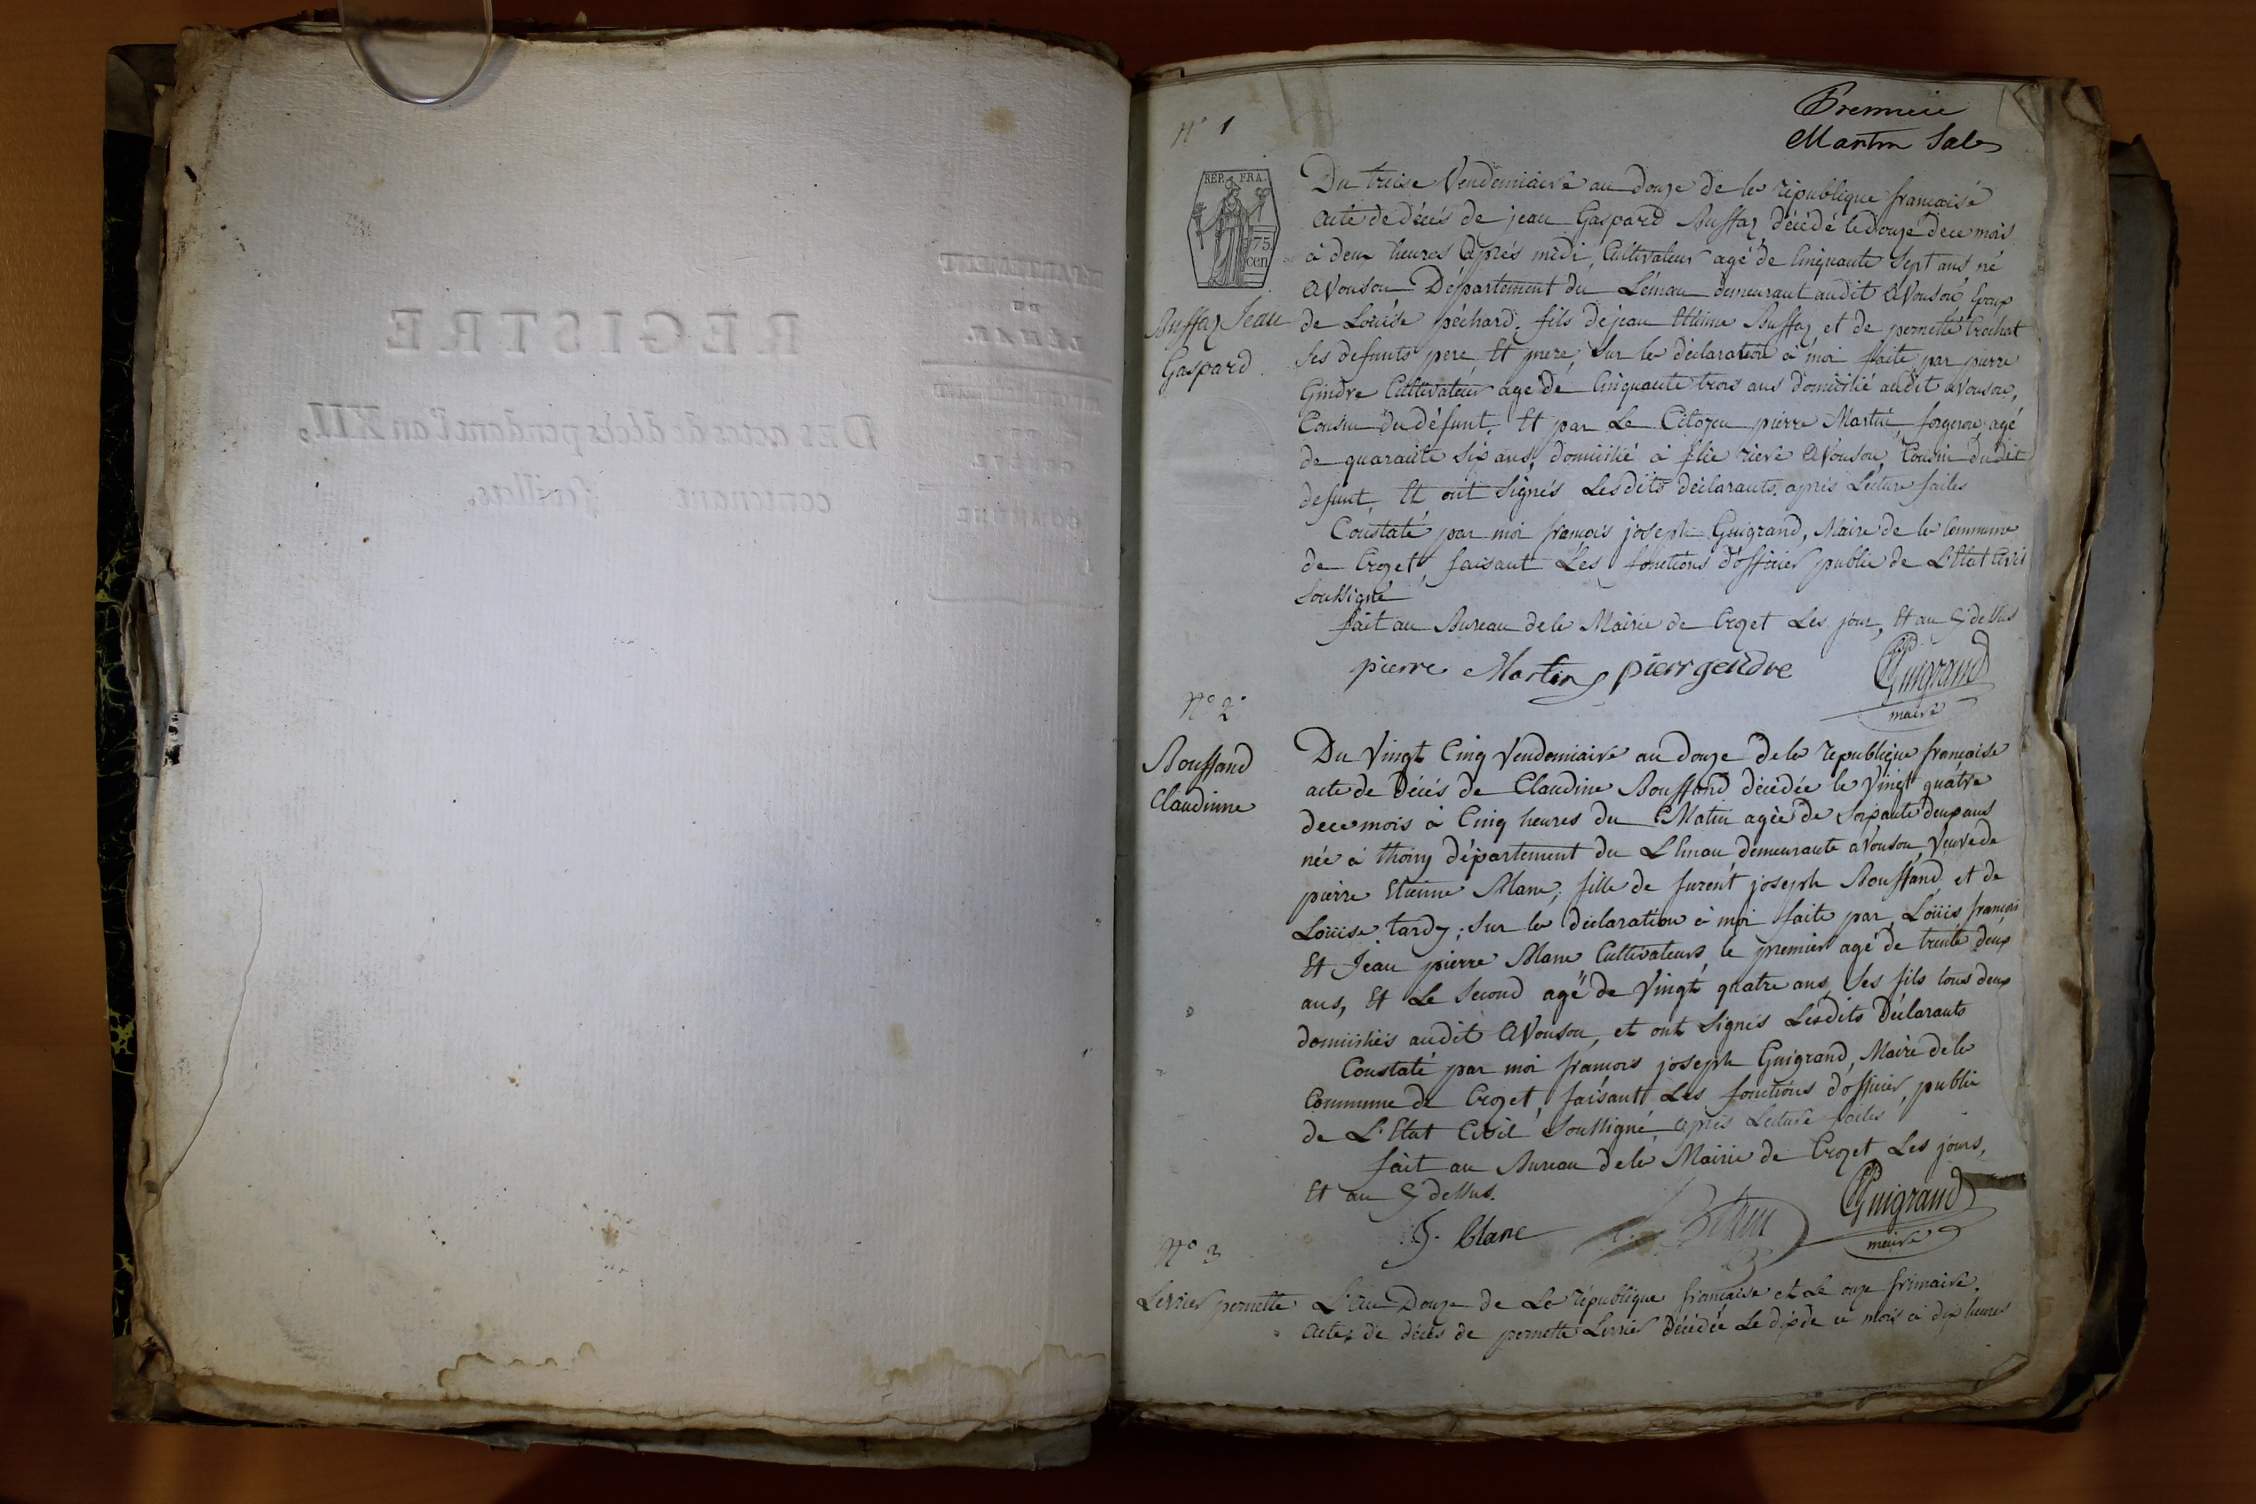 DÉPARTEMENT
DU
LÉMAN.
REGISTRE
DES actes de décès pendant l'an XII,
contenant feuillets.
COMMUNE
Premiere
Martin Sales
N° 1
REP. FRA.
75
cen
Buffaz Jean
Gaspard
Du treise Vendemiaire an douze de la république francaise
acte de décés de jean Gaspard Buffaz décédé le douze de ce mois
à deux heures aprés midi, Cultivateur agé de Cinquante Sept ans né
avouson Département du Léman demeurant audit avouson Epoux
de Loüise péchard, fils de jean Etiene Buffaz et de pernette Crochat
Ses defunts pere Et mere, Sur la déclaration à moi faite par pierre
Gindre Cultivateur agé de Cinquante trois ans domicilié audit avouson,
Cousin du défunt, Et par Le Citoyen pierre Martin, forgeron, agé
de quarante Six ans, domicilié à flie riere avouson, Cousin du dit
defunt, Et ont Signés Lesdits declarants, aprés Lecture faites
Constaté par moi francois joseph Guigrand, Maire de la Commune
de Crozet faisant Les fonctions d'officier public de L'Etat Civil
Soussigné
fait au Bureau de la Mairie de Crozet Les jour, Et an Cy dessus
pierre Martin pierr gendre
Guigrand
maire
N° 2
Bouffand
Claudinne
Du Vingt Cinq Vendemiaire an douze de la republique francaise
acte de Décés de Claudine Bouffand décédée le Vingt quatre
de ce mois à Cinq heures du Matin agée de Soixante deux ans
née à thoiry département du Léman, demeurante avouson, Veuve de
pierre Etienne Blanc; fille de furent joseph Bouffand et de
Loüise tardy; Sur la déclaration à moi faite par Loüis francois
Et Jean pierre Blanc Cultivateurs, le premier agé de trente deux
ans, Et Le Second agé de Vingt quatre ans, Ses fils tous deux
domiciliés audit avouson, et ont Signés Lesdits Déclarants
Constaté par moi francois joseph Guigrand, Maire de la
Commune de Crozet, faisant Les fonctions d'officier public
de L'Etat Civil Soussigné, aprés Lecture faites
fait au Bureau de la Mairie de Crozet Les jours,
Et an Cy dessus.
blanc
Guigrand
maire
N° 3
Levrier pernette
L'an Douze de La république francaise et Le onze frimaire
Acte de décés de pernette Levrier Décédée Le dix de ce mois à dix heures